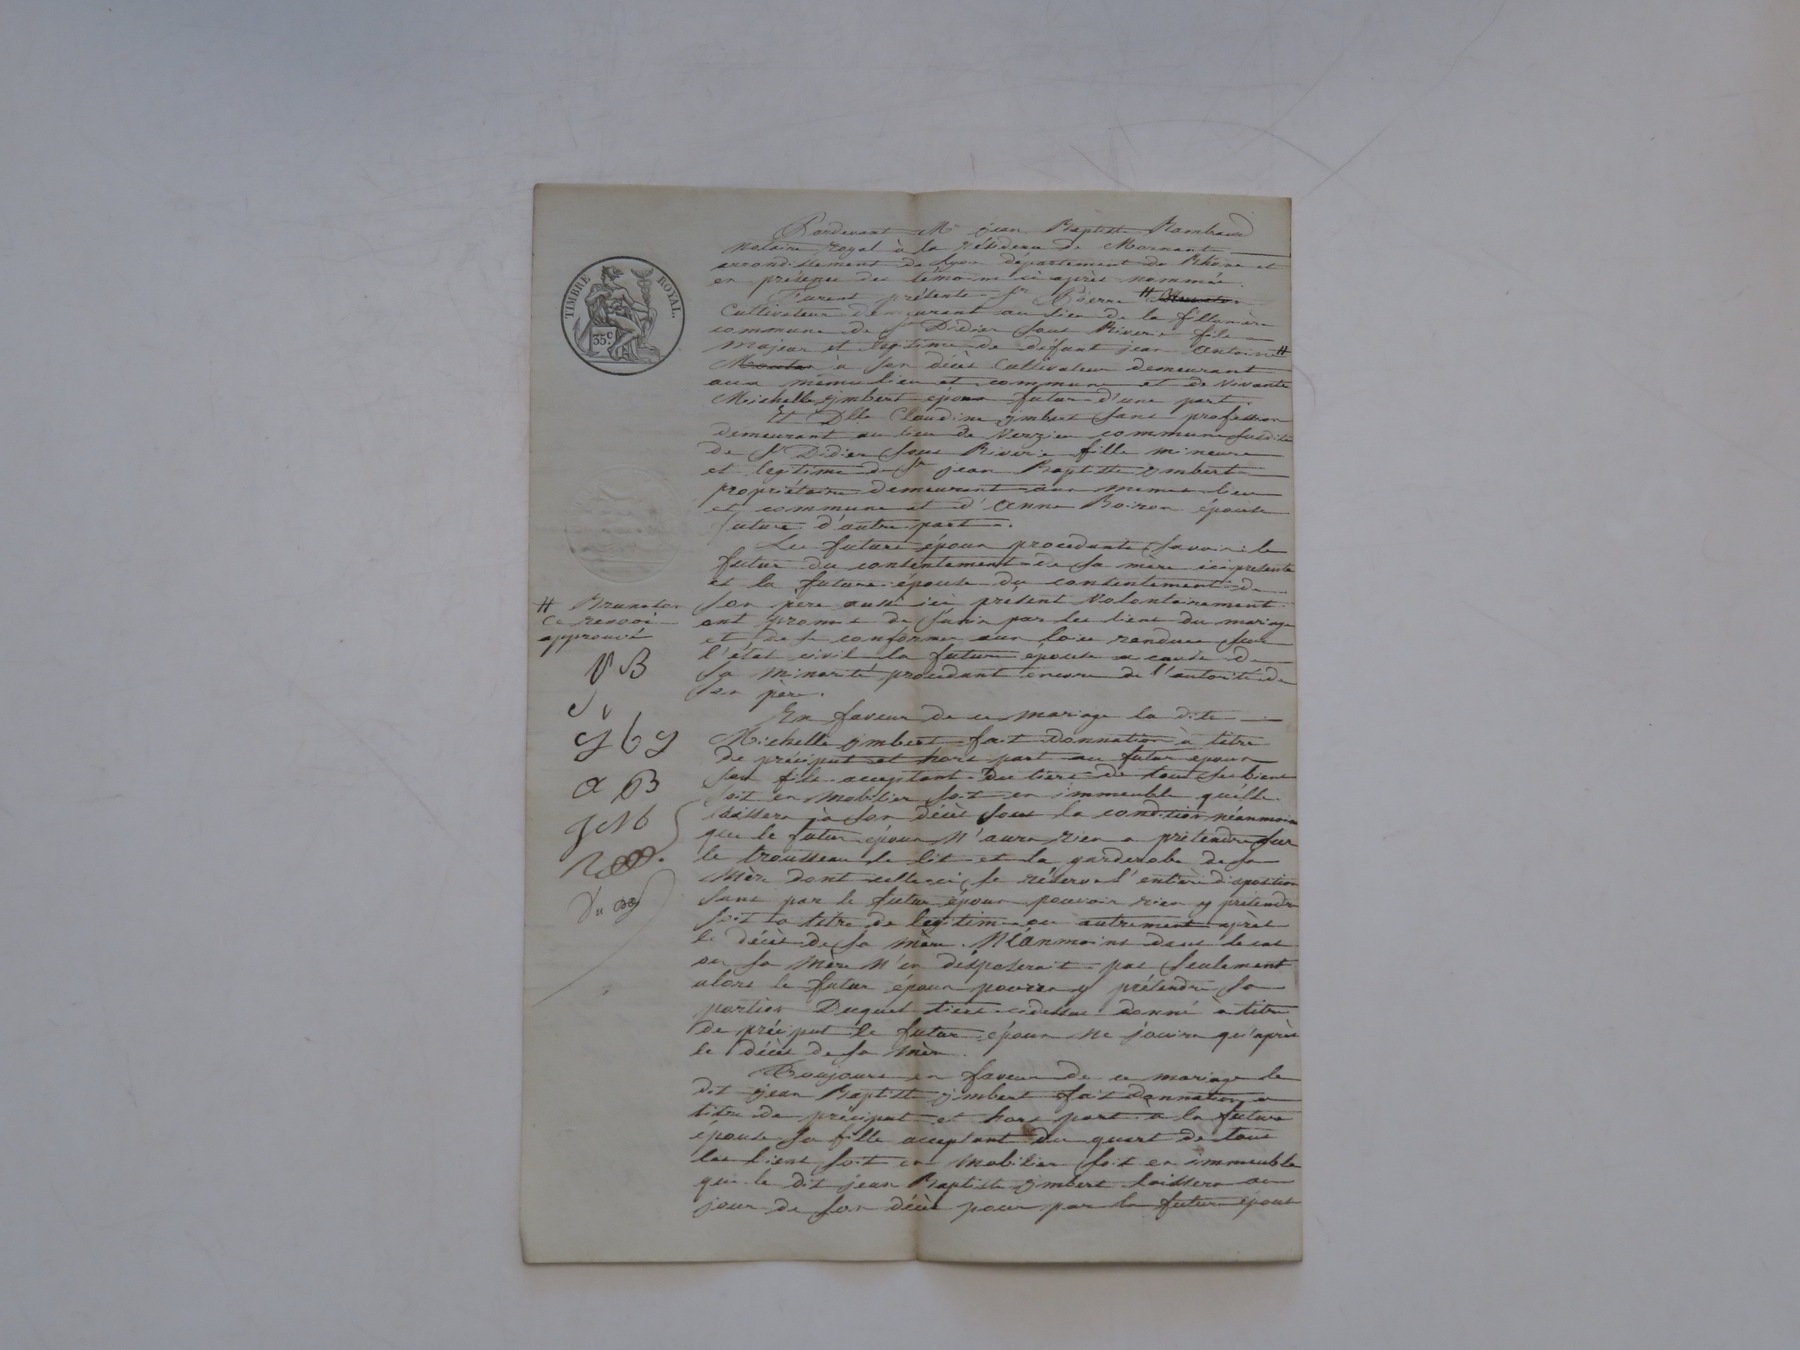 TIMBRE ROYAL.
35 c
Pardevant Me jean Baptiste Rambaud
notaire royal à la résidence de Mornant
arrondissement de Lyon département du Rhône et
en présence des témoins ci après nommés.
Furent présents Sr Pierre #
Cultivateur demeurant au lieu de la fillonière
commune de St Didier sous Riverie fils
majeur et legitime de défunt jean Antoine #
à son décès Cultivateur demeurant
aux mêmes lieu et commune et de vivante
Michelle ymbert époux futur d'une part.
Et Dlle Claudine ymbert sans profession
demeurant au lieu de Verzieu commune susdite
de St Didier sous Riverie fille mineure
et legitime de Sr jean Baptiste ymbert
propriétaire demeurant aux mêmes lieu
et commune et d'Anne Boiron épouse
future d'autre part.
Les futurs époux procedants savoir: le
futur du consentement de sa mère ici présente
et la future épouse du consentement de
son père aussi ici présent volontairement
ont promis de s'unir par les liens du mariage
et de se conformer aux loix rendues sur
l'état civil la future épouse a cause de
sa minorité procedant encore de l'autorité de
son père.
En faveur de ce mariage la dite
Michelle ymbert fait donnation à titre
de préciput et hors part au futur époux
son fils acceptant du tiers de tous ses biens
soit en mobilier soit en immeuble qu'elle
laissera à son décès sous la condition néanmoins
que le futur époux n'aura rien a prétendre sur
le trousseau le lit et la garderobe de sa
mère dont celle ci se réserve l'entière disposition
sans par le futur époux pouvoir rien y prétendre
soit a titre de legitime ou autrement après
le décès de sa mère. Néanmoins dans le cas
ou sa mère n'en disposerait pas seulement
alors le futur époux pourra y prétendre sa
portion Duquel tiers cidessus donné à titre
de préciput le futur époux ne jouira qu'après
le décès de sa mère.
Toujours en faveur de ce mariage le
dit jean Baptiste ymbert fait donnation a
titre de préciput et hors part a la future
épouse sa fille acceptant du quart de tous
les biens soit en mobilier soit en immeuble
que le dit jean Baptiste ymbert laissera au
jour de son décès pour par la future épouse
# Bruneton
Ce renvoi
approuvé
V B
J b y
a B